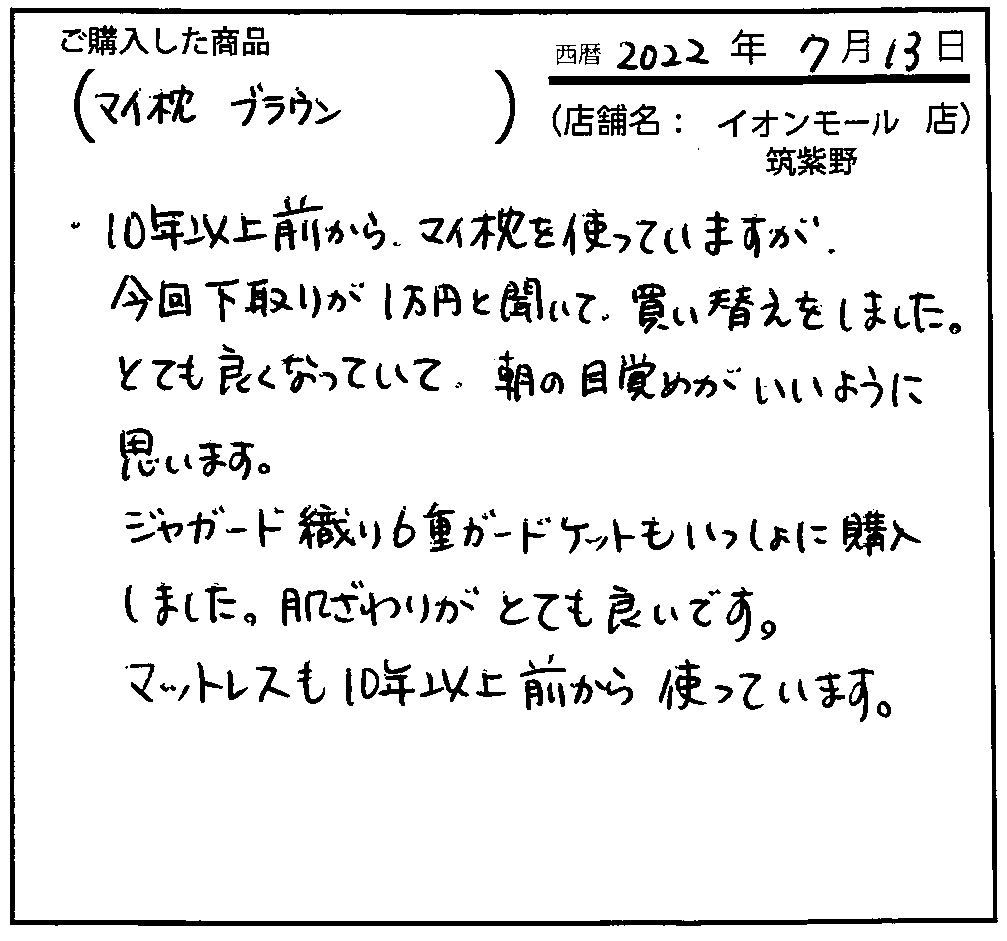 ご購入した商品
(マイ枕 ブラウン)
西暦 2022 年 7 月 13 日
(店舗名： イオンモール 店)
筑紫野
・10年以上前から、マイ枕を使っていますが、
今回下取りが1万円と聞いて、買い替えをしました。
とても良くなっていて、朝の目覚めがいいように
思います。
ジャガード織り6重ガードケットもいっしょに購入
しました。肌ざわりがとても良いです。
マットレスも10年以上前から使っています。